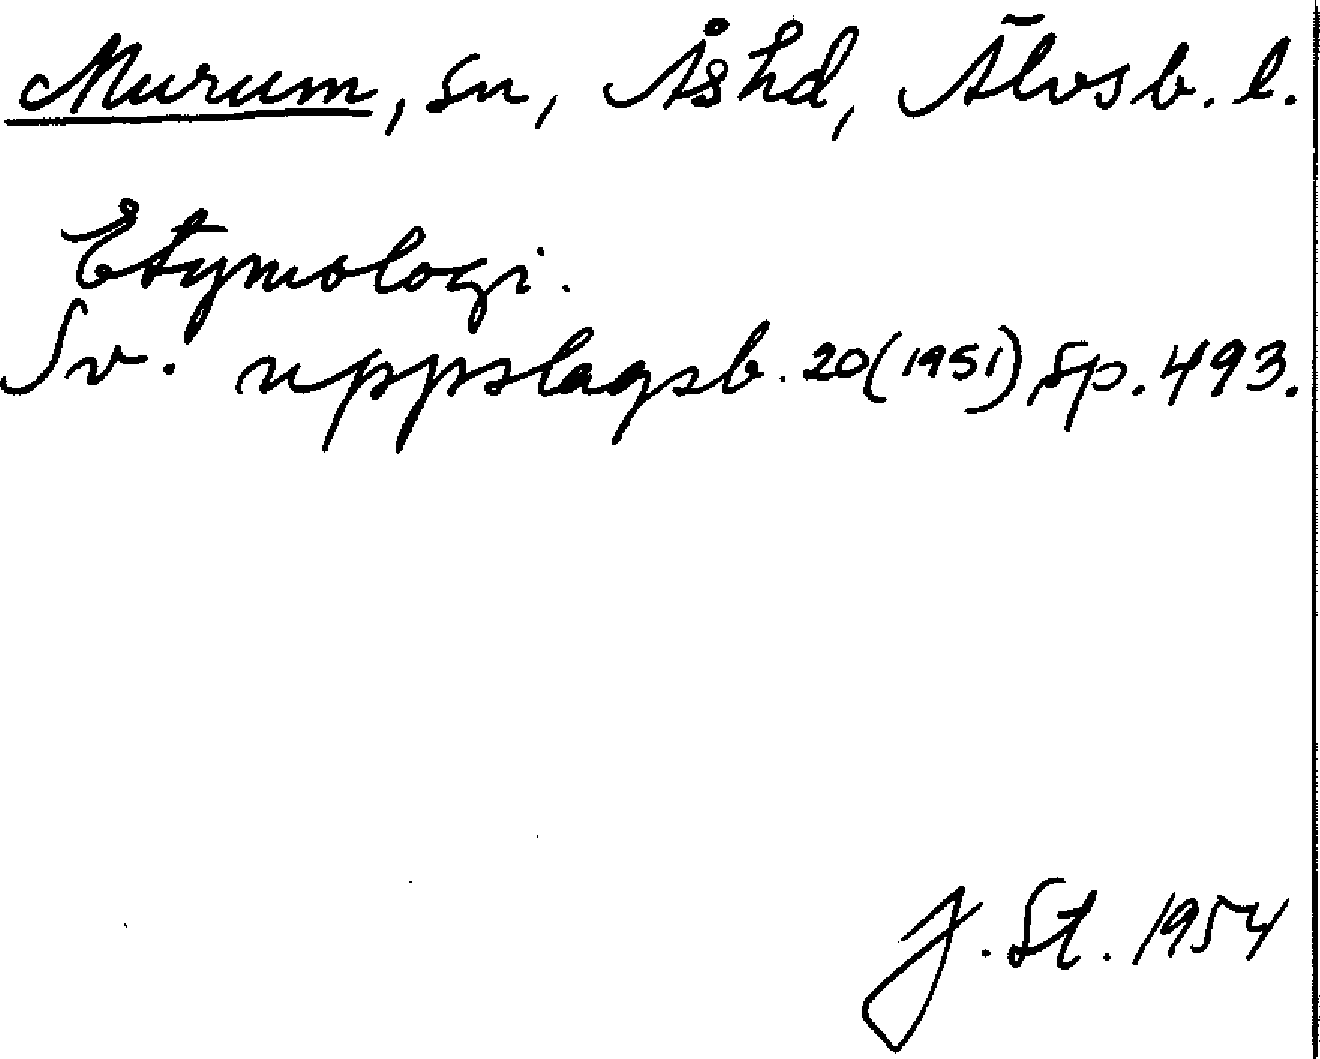 Murum, sn, Ås hd, Älvsb. l.
Etymologi.
Sv. uppslagsb. 20 (1951) sp. 493.
J. St. 1954